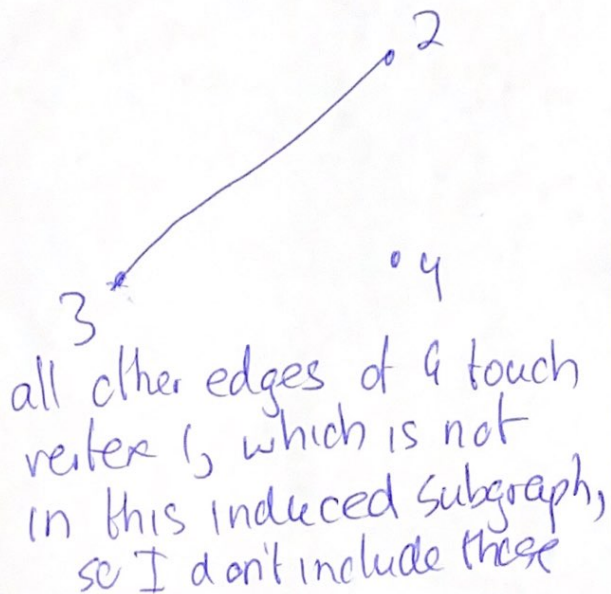 2
3
4
all other edges of G touch
vertex 1, which is not
in this induced subgraph,
so I don't include those